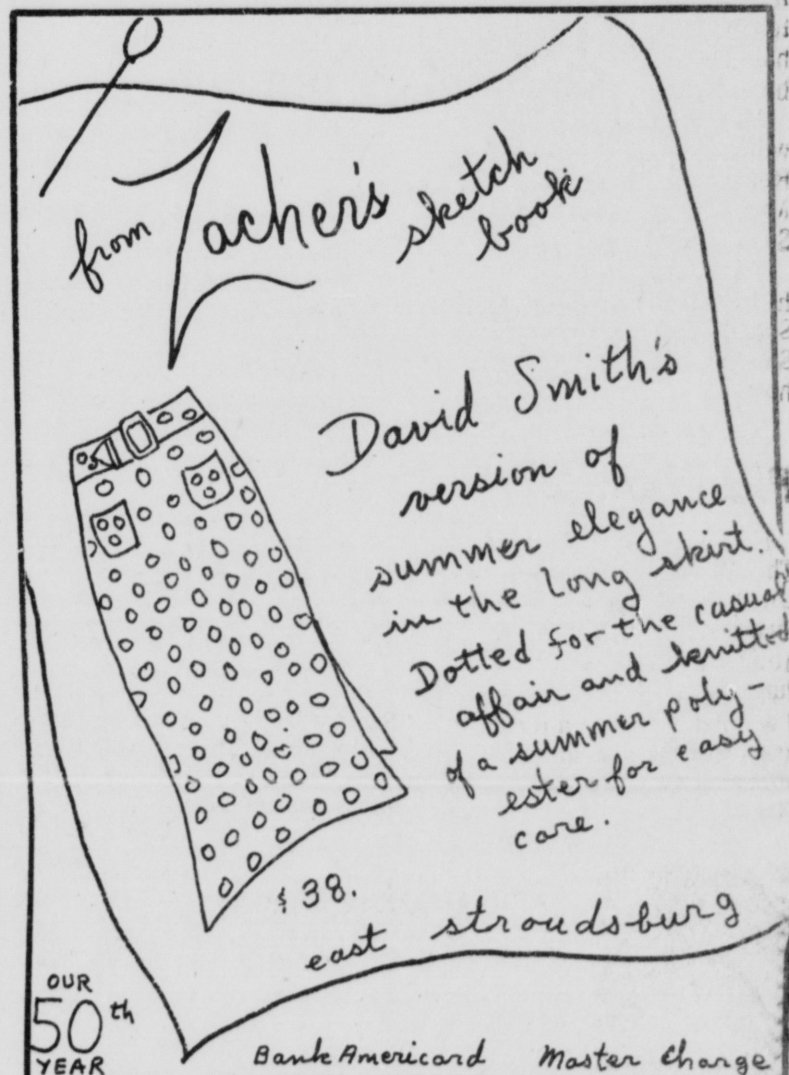 from Zacher's sketch
book
David Smith's
version of
summer elegance
in the long skirt.
Dotted for the casual
affair and knitted
of a summer poly-
ester for easy
care.
$38.
east stroudsburg
OUR
50th
YEAR
BankAmericard Master Charge